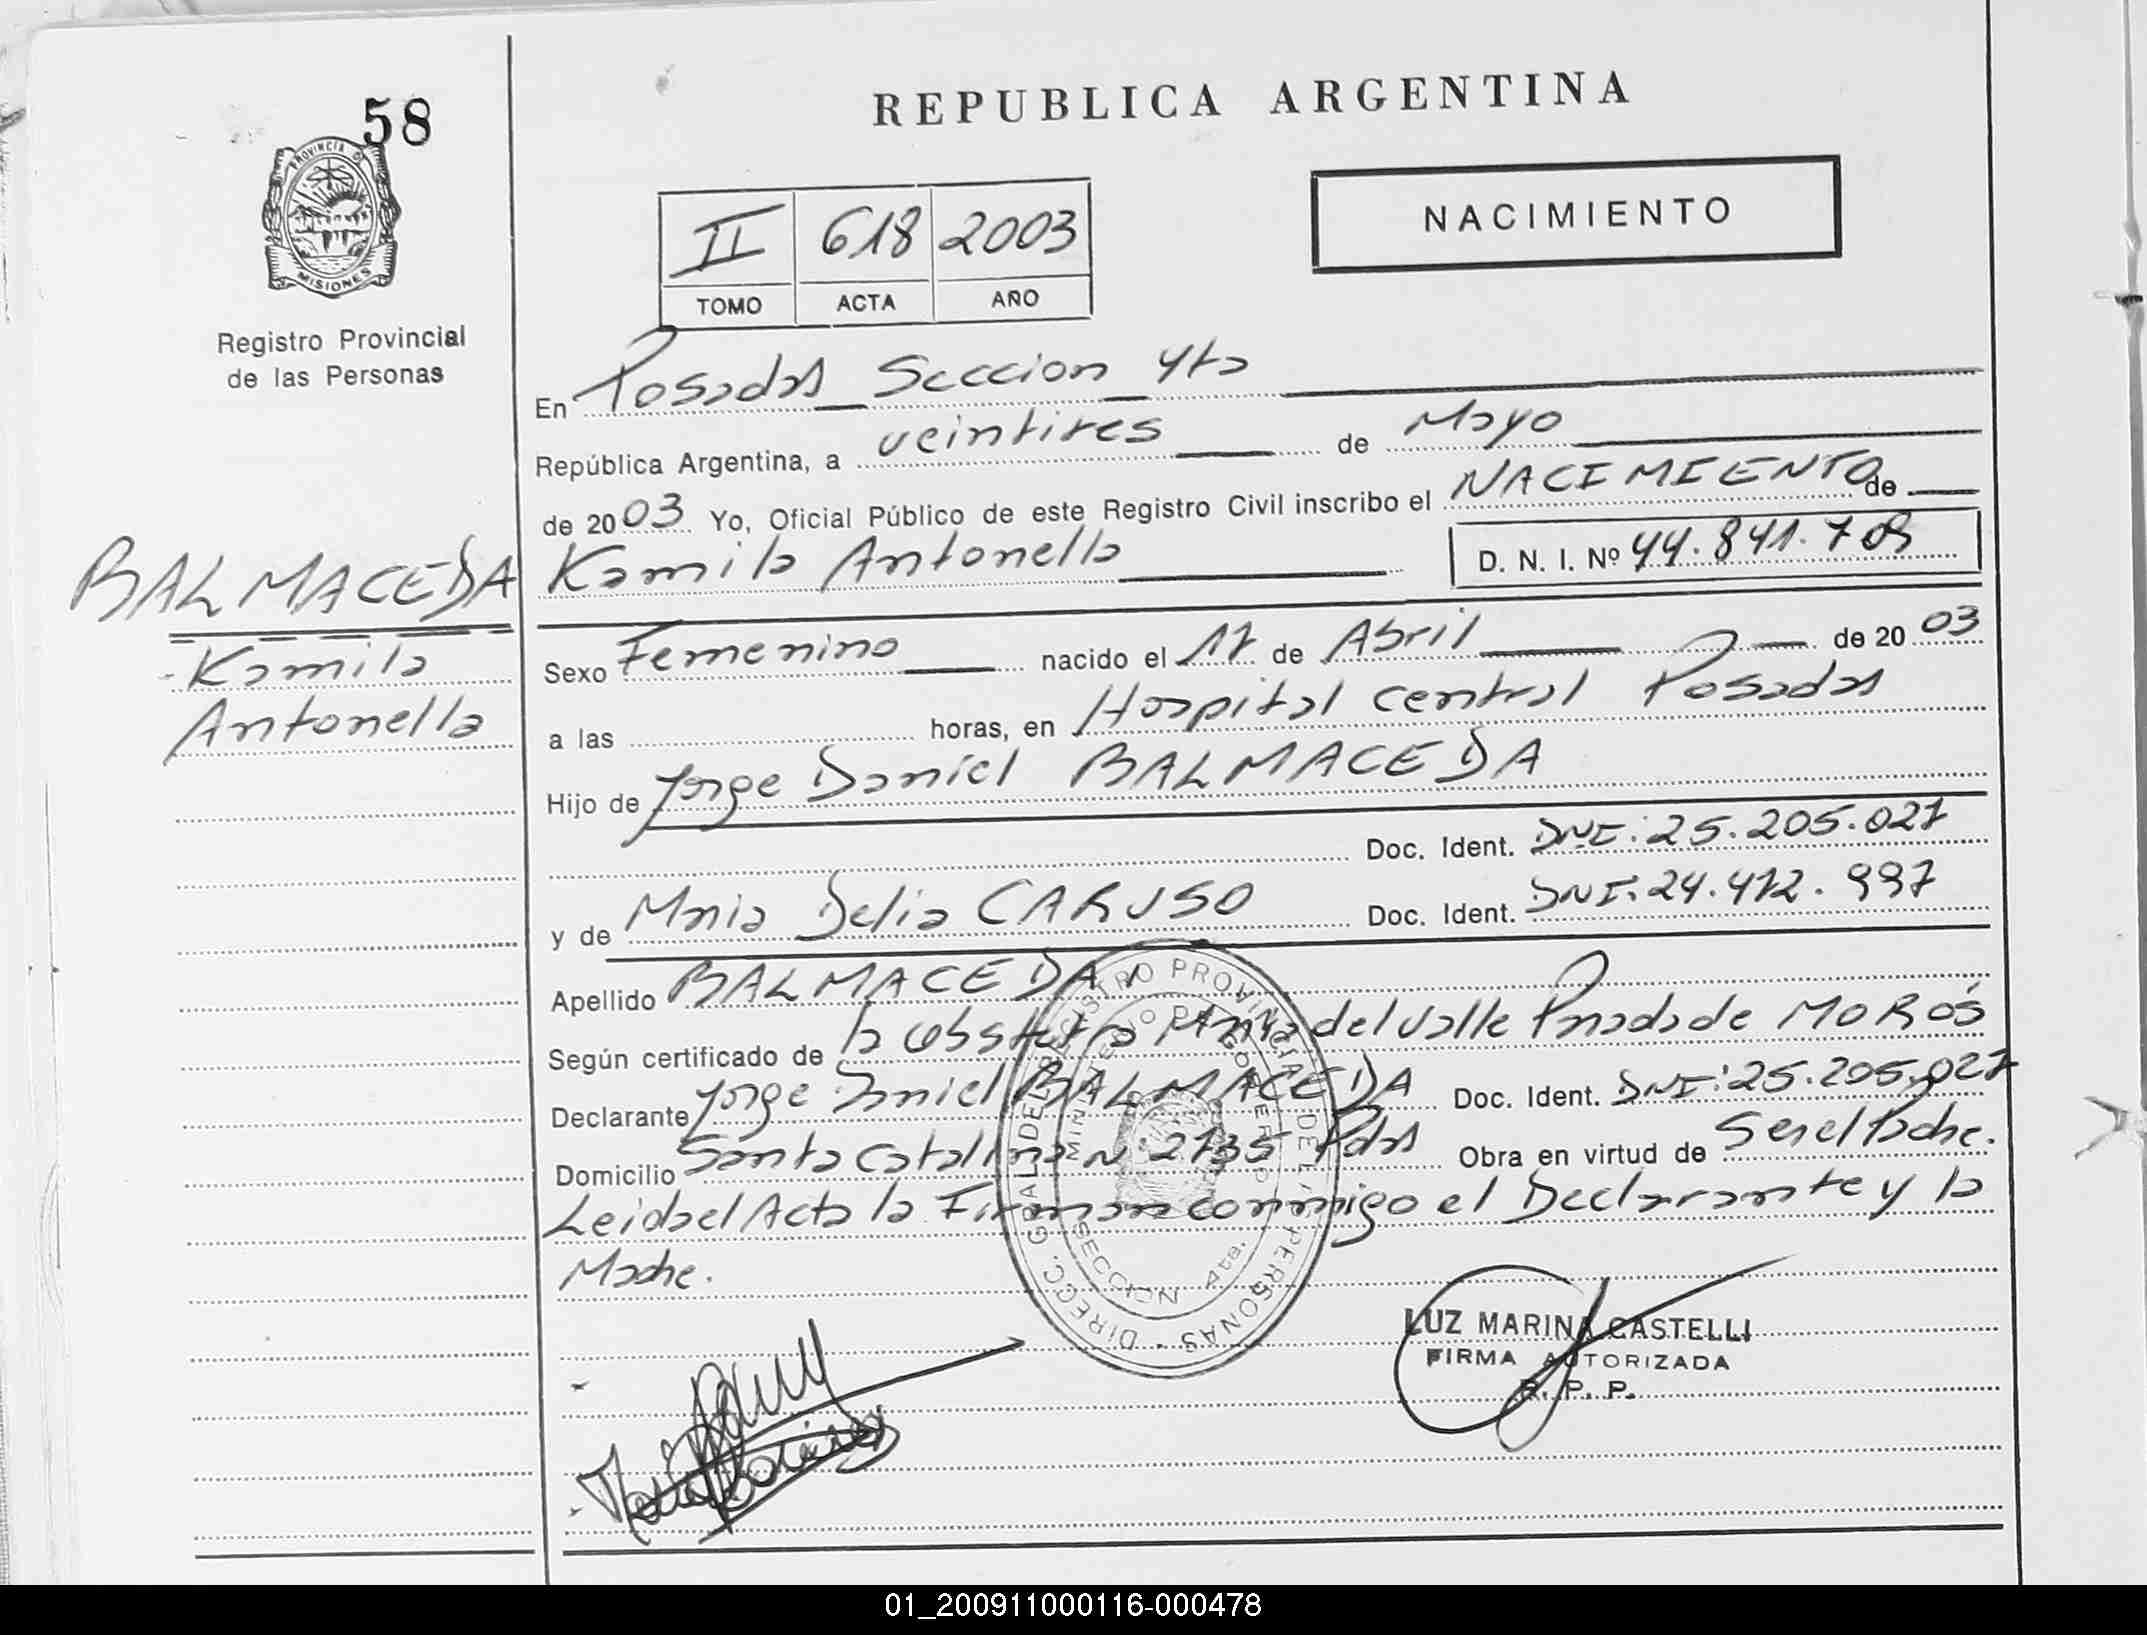 58
PROVINCIA DE
MISIONES
Registro Provincial
de las Personas
REPUBLICA ARGENTINA
NACIMIENTO
II 618 2003
TOMO ACTA AÑO
En Posadas Seccion 4ta
República Argentina, a veintitres de Mayo
de 2003 Yo, Oficial Público de este Registro Civil inscribo el NACIMIENTO de
BALMACEDA
Kamila
Antonella
Kamila Antonella D. N. I. Nº 44.841.709
Sexo Femenino nacido el 17 de Abril de 2003
a las horas, en Hospital Central Posadas
Hijo de Jorge Daniel BALMACEDA
Doc. Ident. DNI: 25.205.027
y de Maria Delia CARUSO Doc. Ident. DNI: 24.472.997
Apellido BALMACEDA
Según certificado de la Obstetra del Valle Prada de MOROS
Declarante Jorge Daniel BALMACEDA Doc. Ident. DNI: 25.205.027
Domicilio Santa Catalina Nº 2735 Pdas Obra en virtud de Ser el Padre.
Leida el Acta la Firman conmigo el Declarante y la
Madre.
DIRECC. GRAL DEL REGISTRO PROVINCIAL DE LAS PERSONAS
MINISTERIO DE GOBIERNO
SECCION 4ta.
LUZ MARINA CASTELLI
FIRMA AUTORIZADA
R. P. P.
01_200911000116-000478